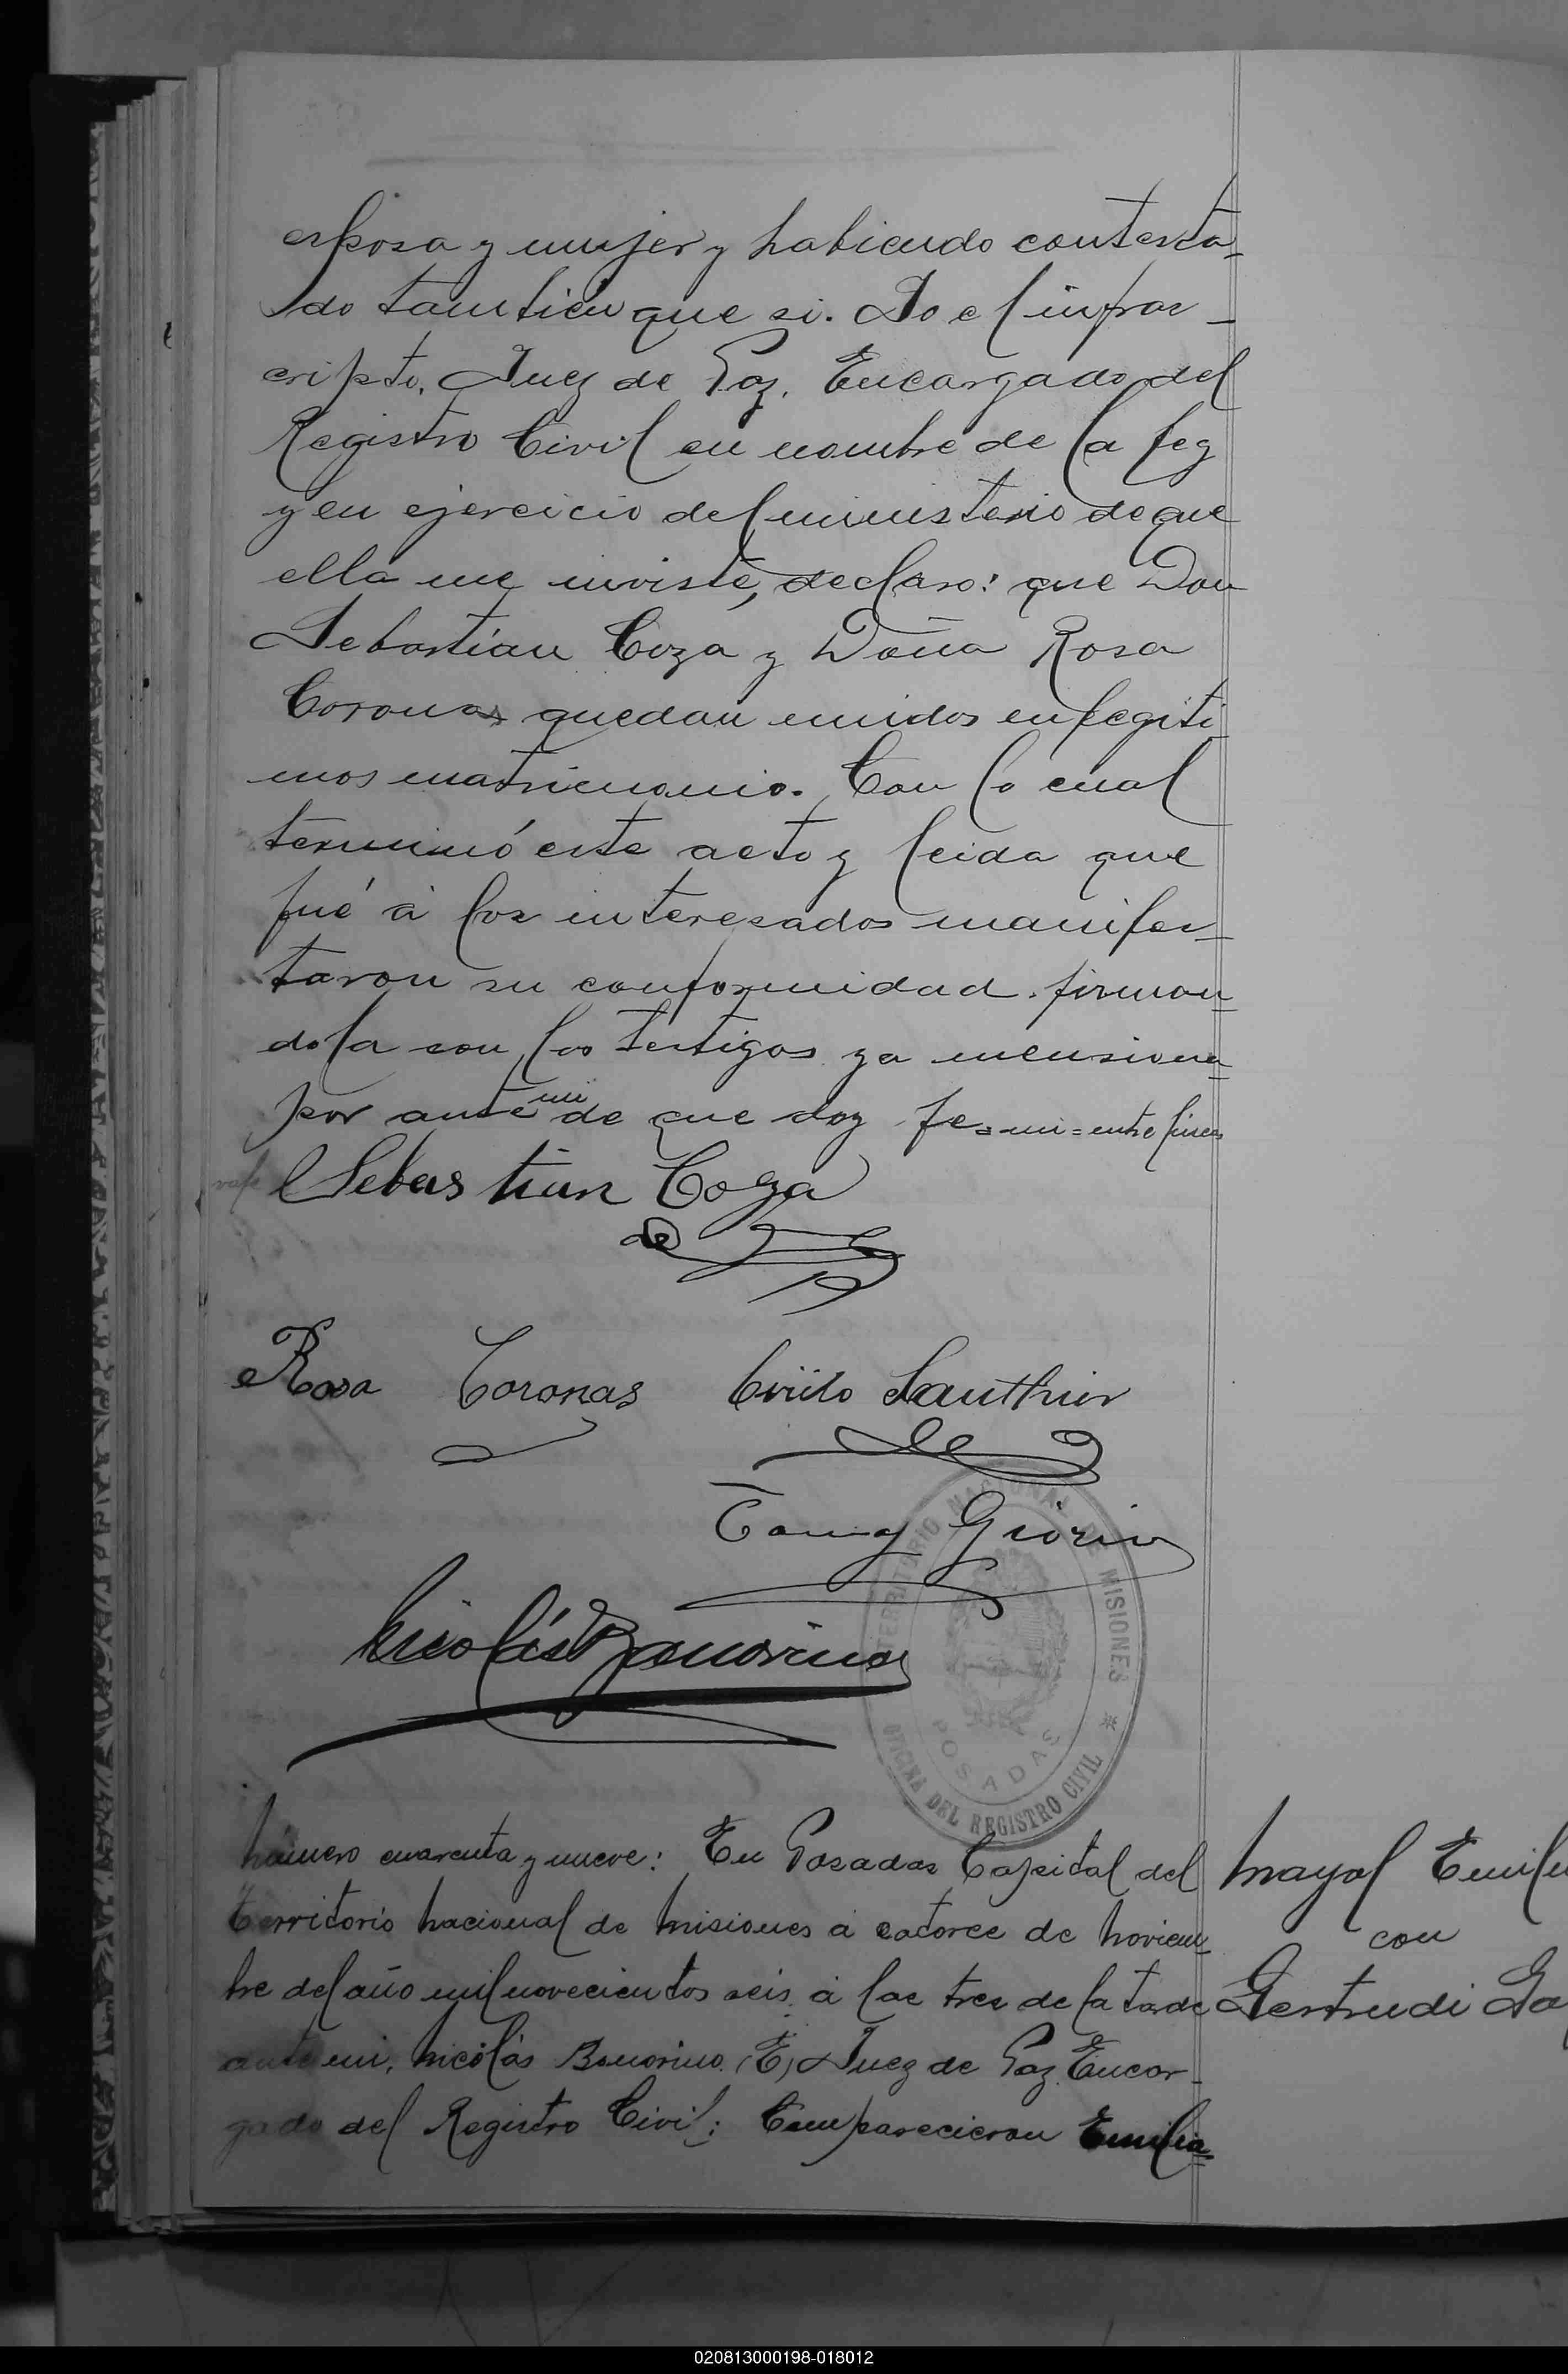 esposa y mujer y habiendo contesta-
do tambien que si. Yo el infras-
cripto, Juez de Paz, Encargado del
Registro Civil en nombre de la ley
y en ejercicio del ministerio de que
ella me inviste, declaro: que Don
Sebastian Coza y Doña Rosa
Coronas quedan unidos en legiti-
mos matrimonio. Con lo cual
terminó este acto y leida que
fué á los interesados manifes-
taron su conformidad, firman-
dola con los testigos ya mensiona-
por ante mi de que doy fe=mi=entre lineas
vale Sebastian Coza
Rosa Coronas Cirilo Lauthier
Giorio
Nicolás Bonorino
TERRITORIO NACIONAL DE MISIONES
POSADAS
OFICINA DEL REGISTRO CIVIL
Número cuarenta y nueve: En Posadas Capital del
Territorio Nacional de Misiones á catorce de Noviem-
bre del año mil novecientos seis, á las tres de la tarde
ante mi, Nicolás Bonorino (E) Juez de Paz Encar-
gado del Registro Civil: Comparecieron Emilia-
Mayol Emili
con
Gertrudi Ga
020813000198-018012